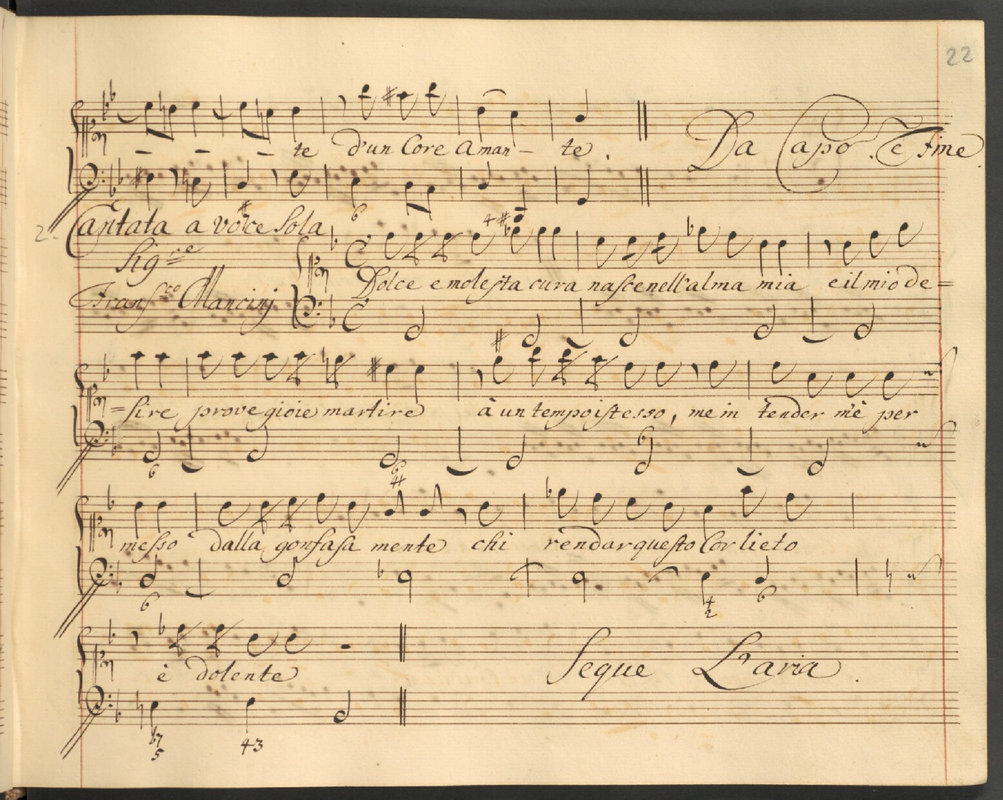 22
te d'un Core Aman- te.
Da Capo. e Fine.
2. Cantata a voce Sola
Sig.re
Fran.sco Mancinj
Dolce e molesta cura nasce nell'alma mia e il mio de=
=sire prove gioie martire à un tempo istesso, me in tender m'è per
messo dalla gonfasa mente chi rendar questo Cor lieto
è dolente
Segue L'aria.
6
#
4 #
#
6
6
4
6
4
2
6
b7
5
43